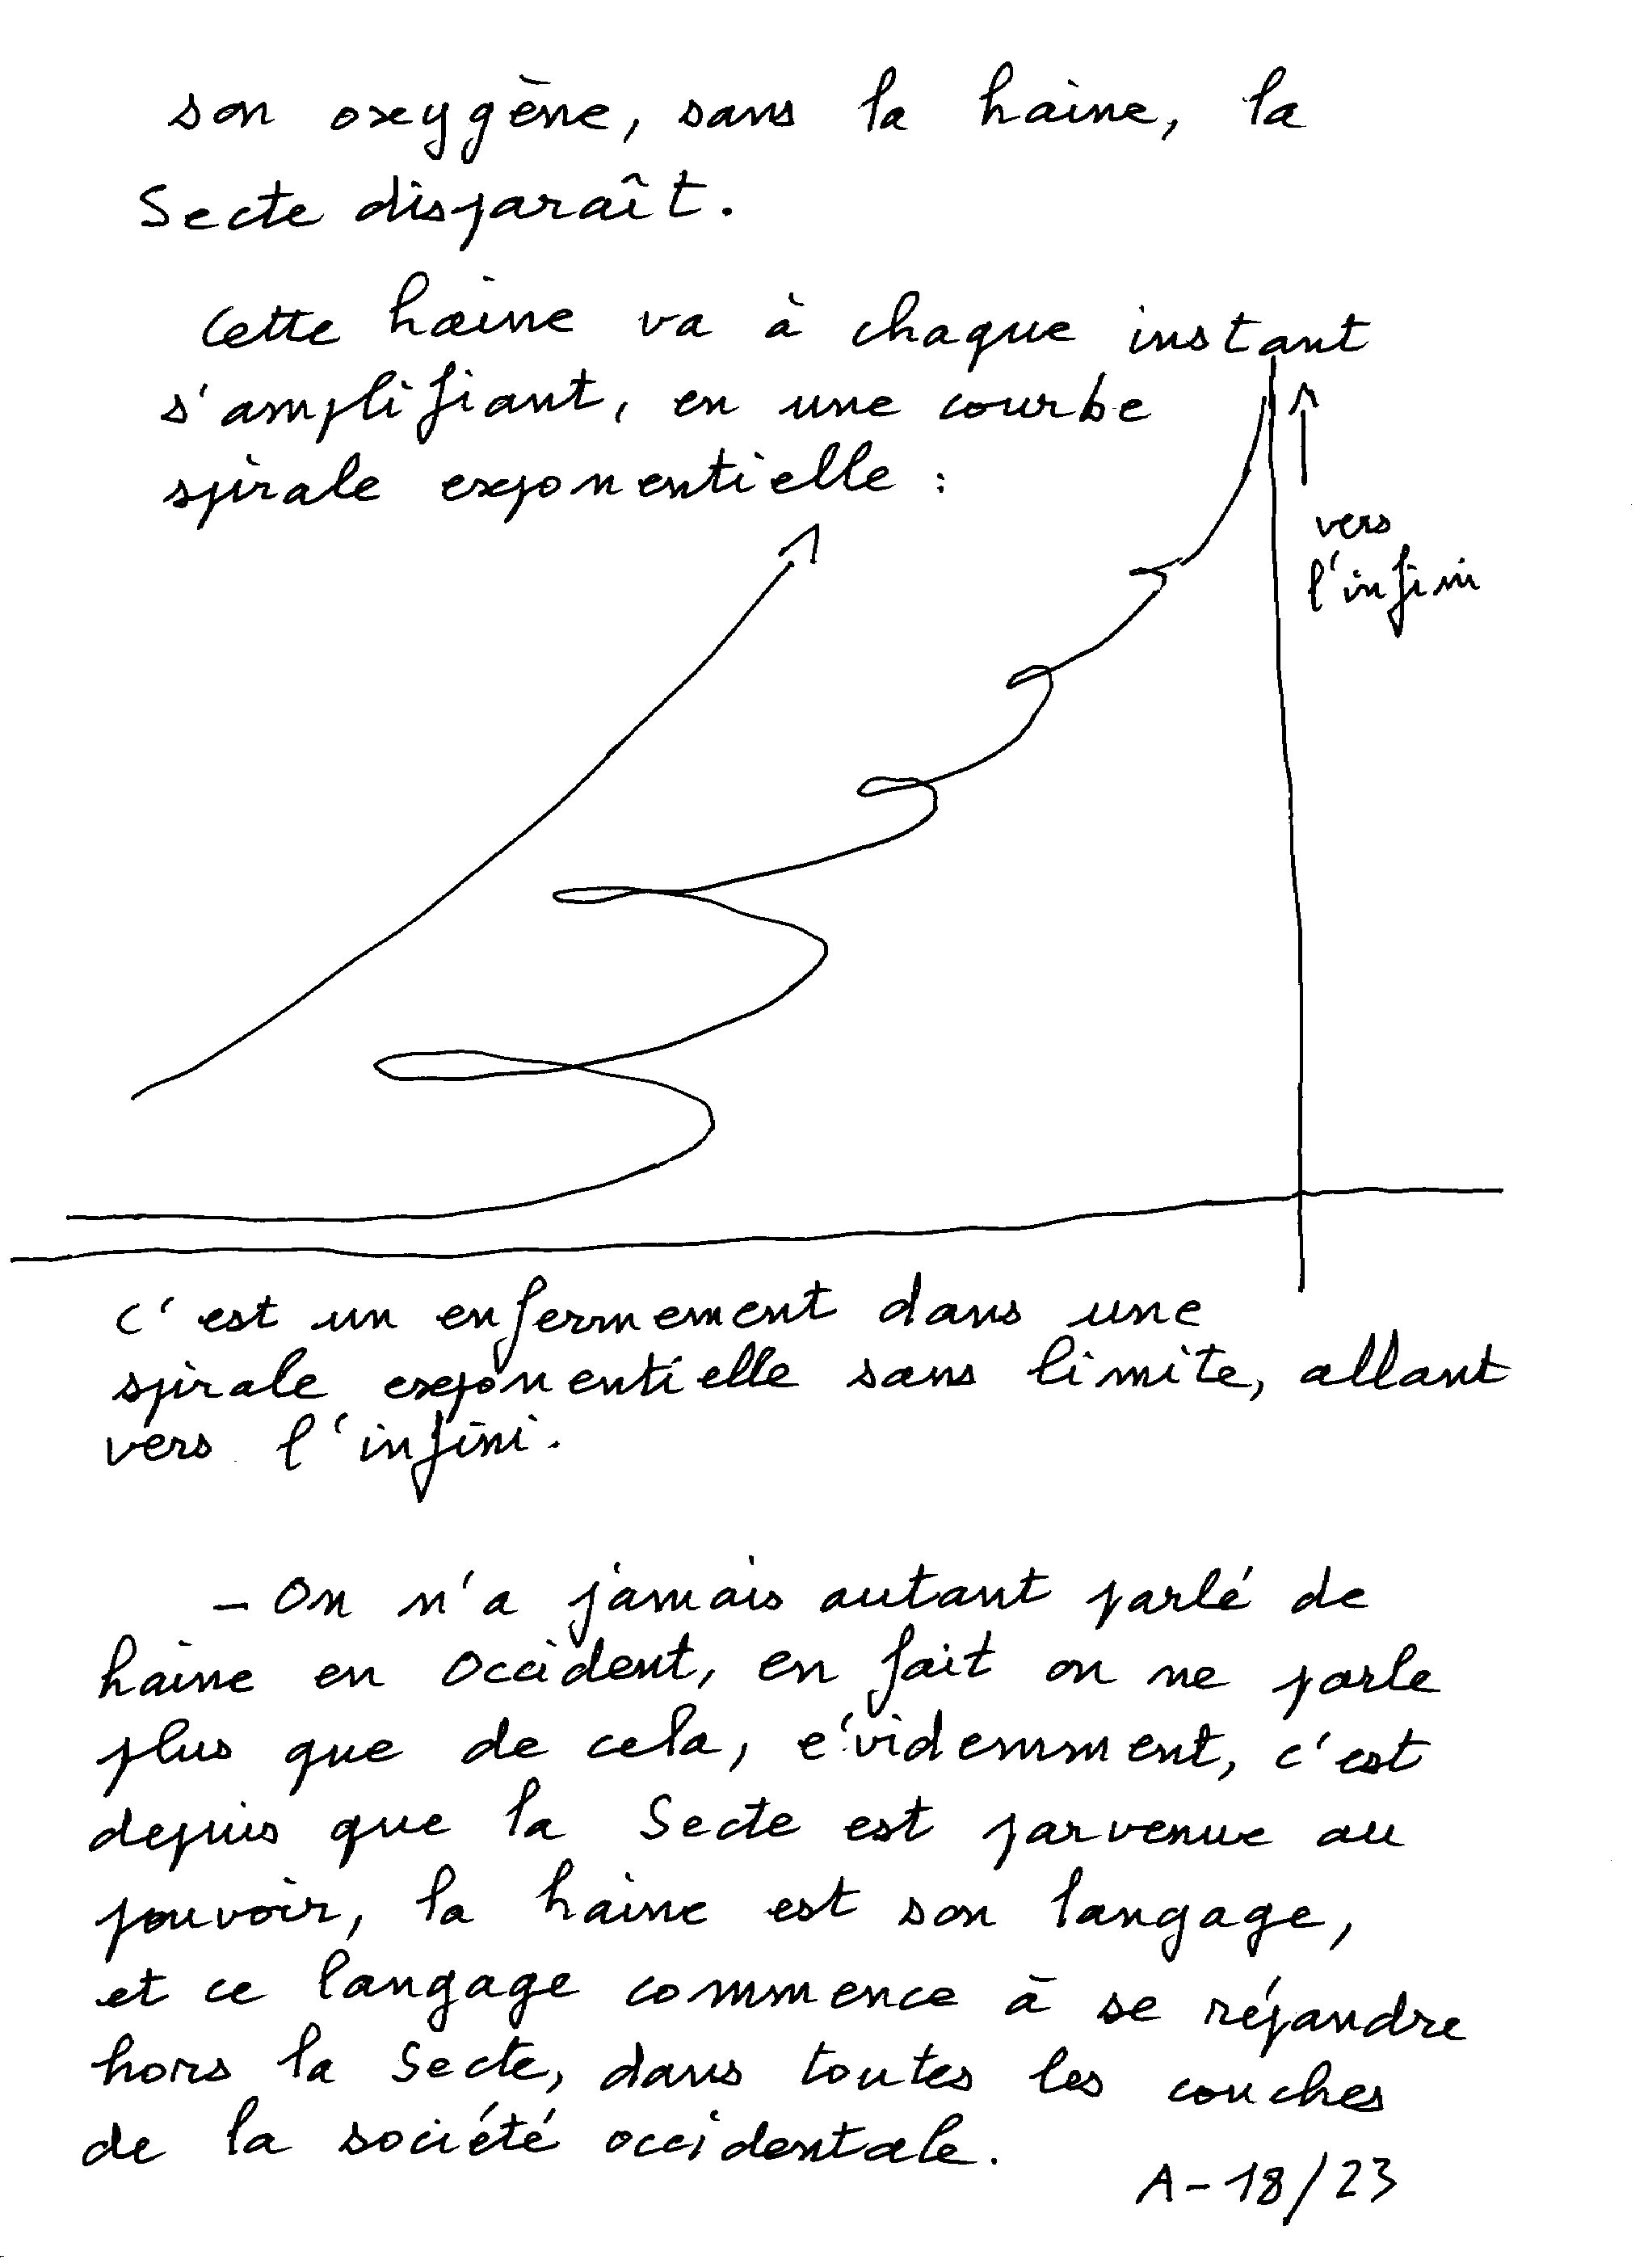 son oxygène, sans la haine, la
Secte disparaît.
Cette haine va à chaque instant
s'amplifiant, en une courbe
spirale exponentielle :
vers
l'infini
c'est un enfermement dans une
spirale exponentielle sans limite, allant
vers l'infini.
- On n'a jamais autant parlé de
haine en Occident, en fait on ne parle
plus que de cela, évidemment, c'est
depuis que la Secte est parvenue au
pouvoir, la haine est son langage,
et ce langage commence à se répandre
hors la Secte, dans toutes les couches
de la société occidentale.
A-18/23